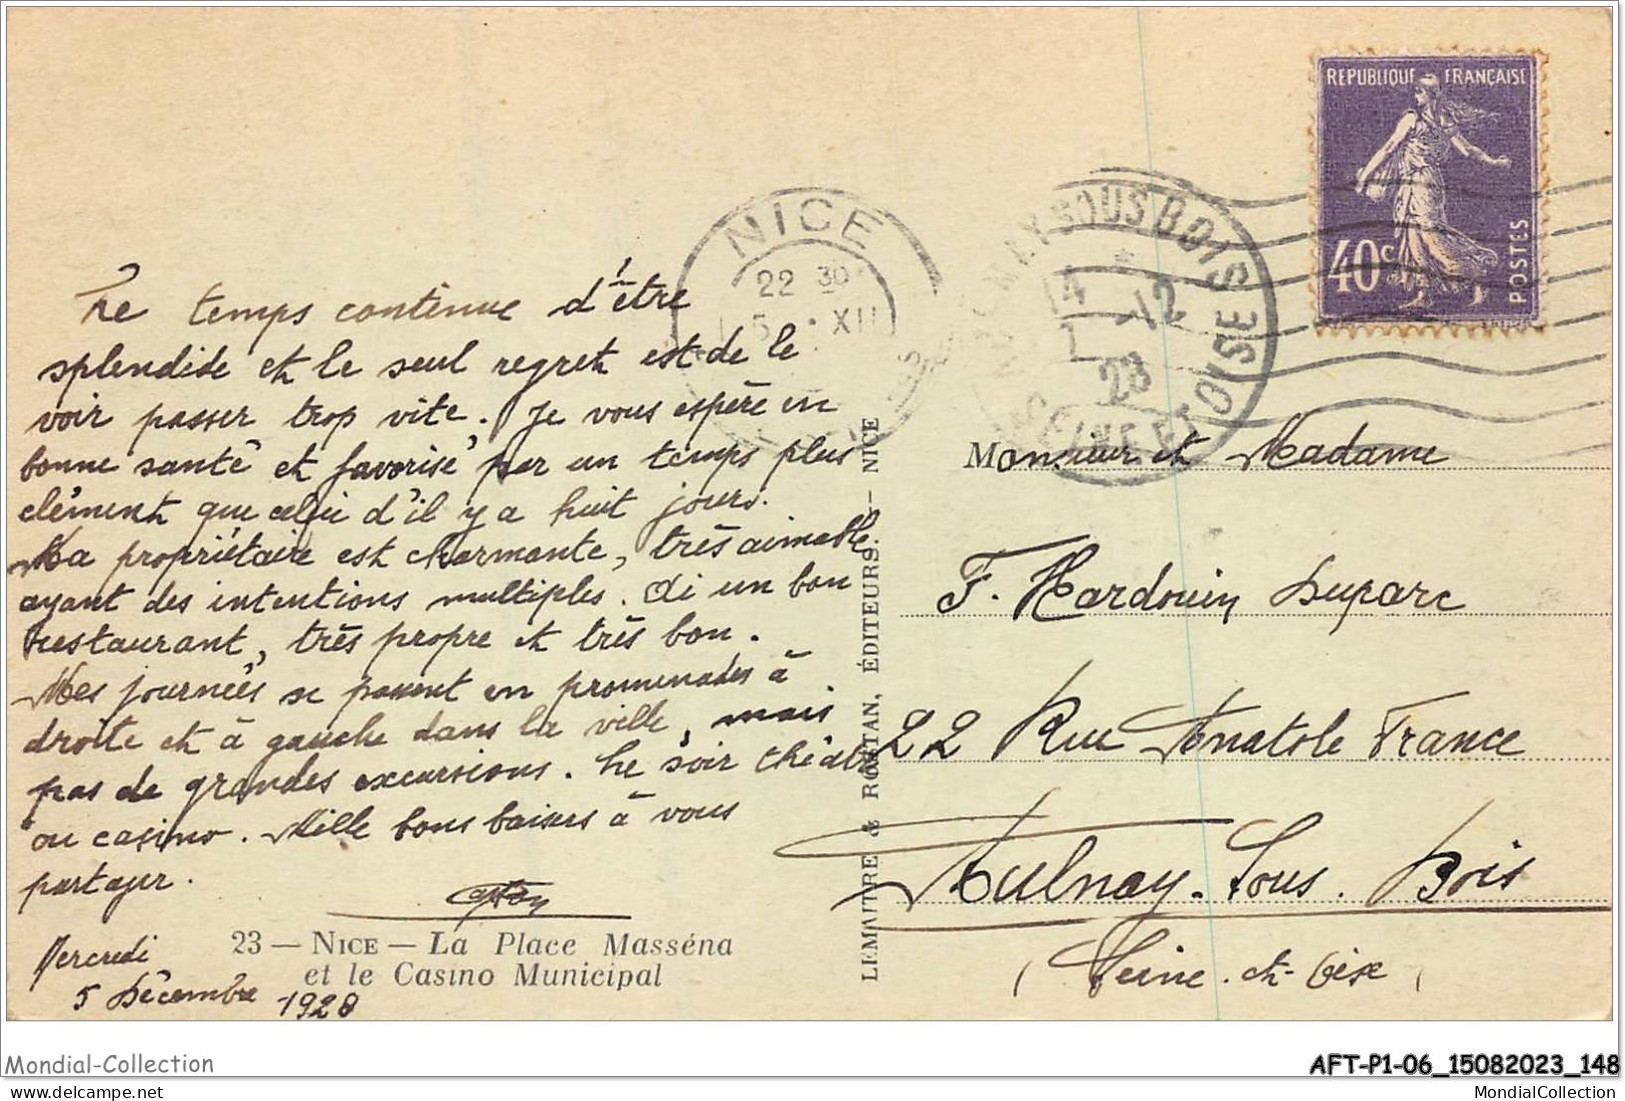 Le temps continue d'être
splendide et le seul regret est de le
voir passer trop vite. Je vous espère en
bonne santé et favorisé par un temps plus
clément que celui d'il y a huit jours.
Ma propriétaire est charmante, très aimable
ayant des intentions multiples. Ai un bon
restaurant, très propre et très bon.
Mes journées se passent en promenades à
droite et à gauche dans la ville, mais
pas de grandes excursions. Le soir théâtre
ou casino. Mille bons baisers à vous
partager.
Gaston
Mercredi
5 Décembre 1928
23 — NICE — La Place Masséna
et le Casino Municipal
LEMAITRE & ROSTAN, ÉDITEURS. — NICE
NICE
22 30
5 . XII
AULNAY SOUS BOIS
14
7 - 12
28
SEINE ET OISE
REPUBLIQUE FRANÇAISE
40c
POSTES
Monsieur et Madame
F. Hardouin Duparc
22 Rue Anatole France
Aulnay-Sous-Bois
(Seine-et-Oise)
Mondial-Collection
AFT-P1-06_15082023_148
www.delcampe.net
MondialCollection